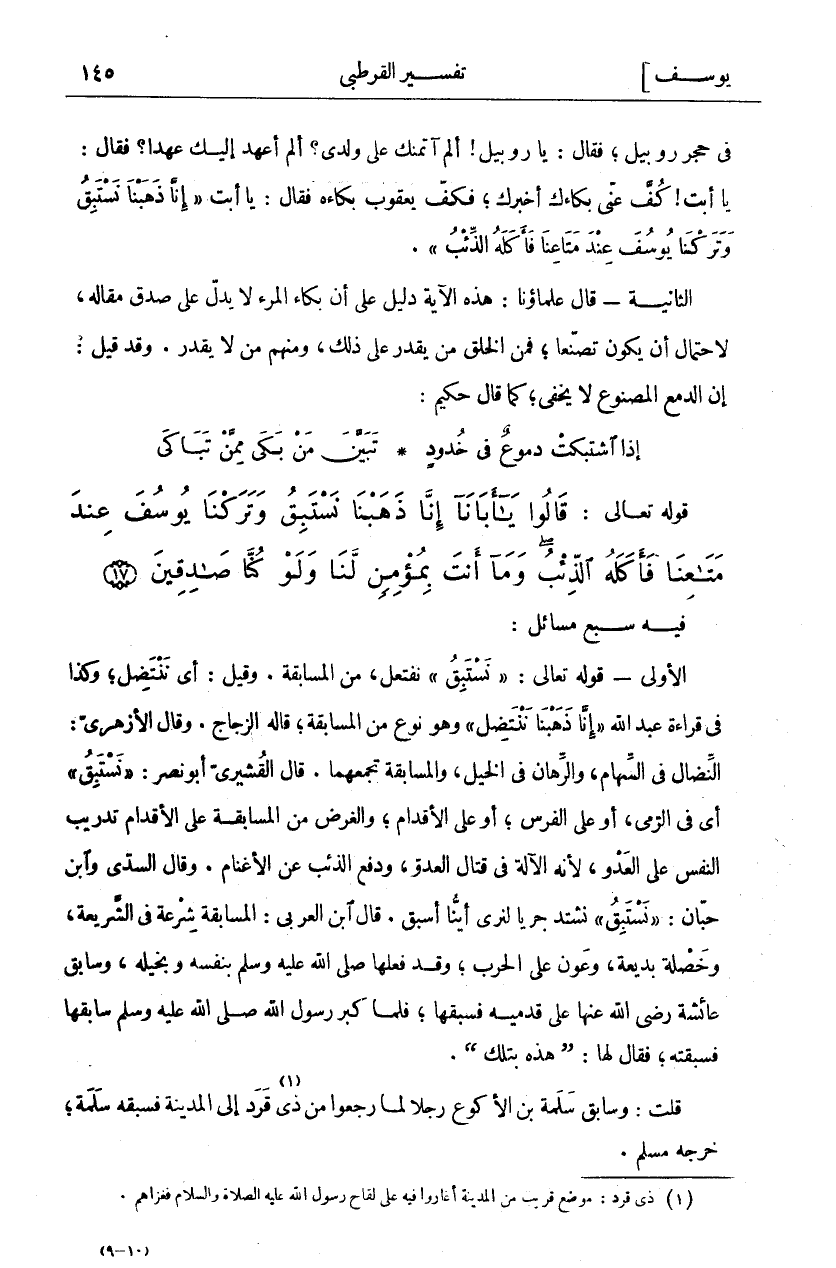 يوسف] تفسير القرطبى ١٤٥
فى حجر روبيل؛ فقال : يا روبيل! ألم آتمنك على ولدى؟ ألم أعهد إليك عهدا؟ فقال :
يا أبت! كُفَّ عنّى بكاءك أخبرك؛ فكفّ يعقوب بكاءه فقال : يا أبت «إِنَّا ذَهَبْنَا نَسْتَبِقُ
وَتَرَكْنَا يُوسُفَ عِنْدَ مَتَاعِنَا فَأَكَلَهُ الذِّئْبُ» .
الثانيـة – قال علماؤنا : هذه الآية دليل على أن بكاء المرء لا يدلّ على صدق مقاله،
لاحتمال أن يكون تصنّعا؛ فمن الخلق من يقدر على ذلك، ومنهم من لا يقدر . وقد قيل :
إن الدمع المصنوع لا يخفى؛ كما قال حكيم :
إذا ٱشتبكتْ دموعٌ فى خُدودٍ * تَبَيَّنَ مَنْ بَكَى مِمَّنْ تَبَاكَى
قوله تعـالى : قَالُوا يَـٰٓأَبَانَآ إِنَّا ذَهَبْنَا نَسْتَبِقُ وَتَرَكْنَا يُوسُفَ عِندَ
مَتَـٰعِنَا فَأَكَلَهُ ٱلذِّئْبُ ۖ وَمَآ أَنتَ بِمُؤْمِنٍ لَّنَا وَلَوْ كُنَّا صَـٰدِقِينَ ١٧
فيـه سـبع مسائل :
الأولى – قوله تعالى : «نَسْتَبِقُ» نفتعل، من المسابقة . وقيل : أى نَنْتَضِل؛ وكذا
فى قراءة عبد الله «إِنَّا ذَهَبْنَا نَنْتَضِل» وهو نوع من المسابقة؛ قاله الزجاج . وقال الأزهرىّ :
النِّضال فى السِّهام، والرِّهان فى الخيل، والمسابقة تجمعهما . قال القُشيرىّ أبو نصر : «نَسْتَبِقُ»
أى فى الرّمى، أو على الفرس؛ أو على الأقدام؛ والغرض من المسابقـة على الأقدام تدريب
النفس على العَدْو، لأنه الآلة فى قتال العدوّ، ودفع الذئب عن الأغنام . وقال السدّى وٱبن
حبّان : «نَسْتَبِقُ» نشتد جريا لنرى أيُّنا أسبق . قال ٱبن العربى : المسابقة شِرْعة فى الشَّريعة،
وخَصْلة بديعة، وعَون على الحرب؛ وقـد فعلها صلى الله عليه وسلم بنفسه وبخيله، وسابق
عائشة رضى الله عنها على قدميـه فسبقها؛ فلمـا كبر رسول الله صـلى الله عليه وسلم سابقها
فسبقته؛ فقال لها : ”هذه بتلك“ .
قلت : وسابق سَلَمة بن الأكوع رجلا لمـا رجعوا من ذى قَرَد (١) إلى المدينة فسبقه سَلَمة؛
خرجه مسلم .
(١) ذى قرد : موضع قريب من المدينة أغاروا فيه على لقاح رسول الله عليه الصلاة والسلام فغزاهم .
(٩-١٠)